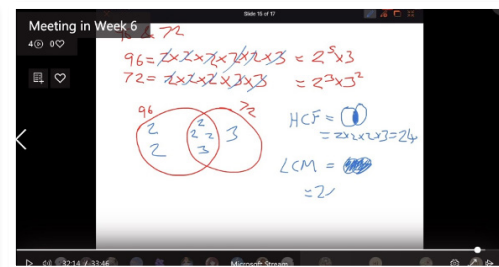 Slide 15 of 17
Meeting in Week 6
4 0
& 72
96 = 2x2x2x2x2x3 = 2⁵x3
72 = 2x2x2x3x3 = 2³x3²
96
72
2
2
2
2 2
3
3
HCF =
= 2x2x2x3=24
LCM =
= 2
32:14 / 33:46
Microsoft Stream